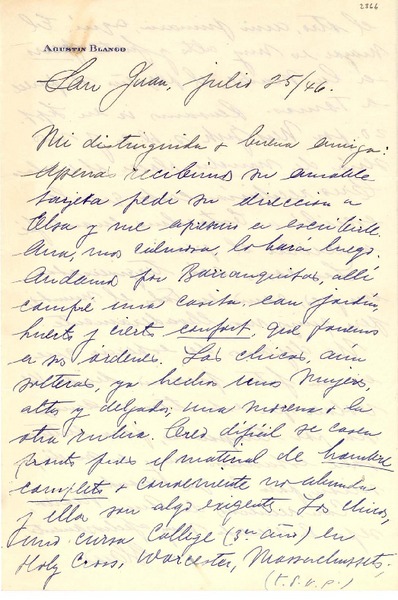 2866
AGUSTIN BLANCO
San Juan, julio 25/46.
Mi distinguida & buena amiga:
Apenas recibimos su amable
tarjeta pedí su dirección a
Elsa y me apresuro a escribirle.
Ana, mas calmosa, lo hará luego.
Andamos por Barranquitas, allí
compré una casita con jardín,
huerto y cierto confort, que ponemos
a sus órdenes. Las chicas, aún
solteras, ya hechas unas mujeres,
altas y delgadas; una morena & la
otra rubia. Creo difícil se casen
pronto pues el material de hombre
completo & conveniente no abunda
y ellas son algo exigentes. Los chicos,
uno cursa College (3er año) en
Holy Cross, Worcester, Massachussets,
(T.S.V.P.)